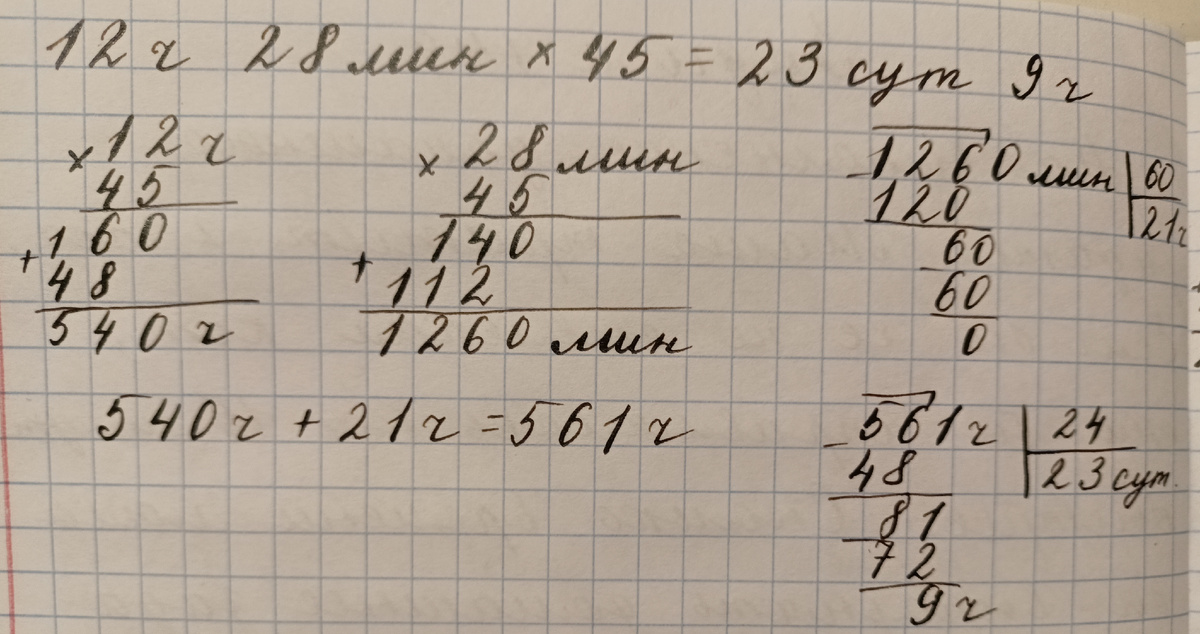 12 ч 28 мин × 45 = 23 сут 9 ч
× 12 ч
45
+ 160
48
540 ч
× 28 мин
45
+ 140
112
1260 мин
- 1260 мин | 60
120 | 21 ч
- 60
60
0
540 ч + 21 ч = 561 ч
- 561 ч | 24
48 | 23 сут.
- 81
72
9 ч